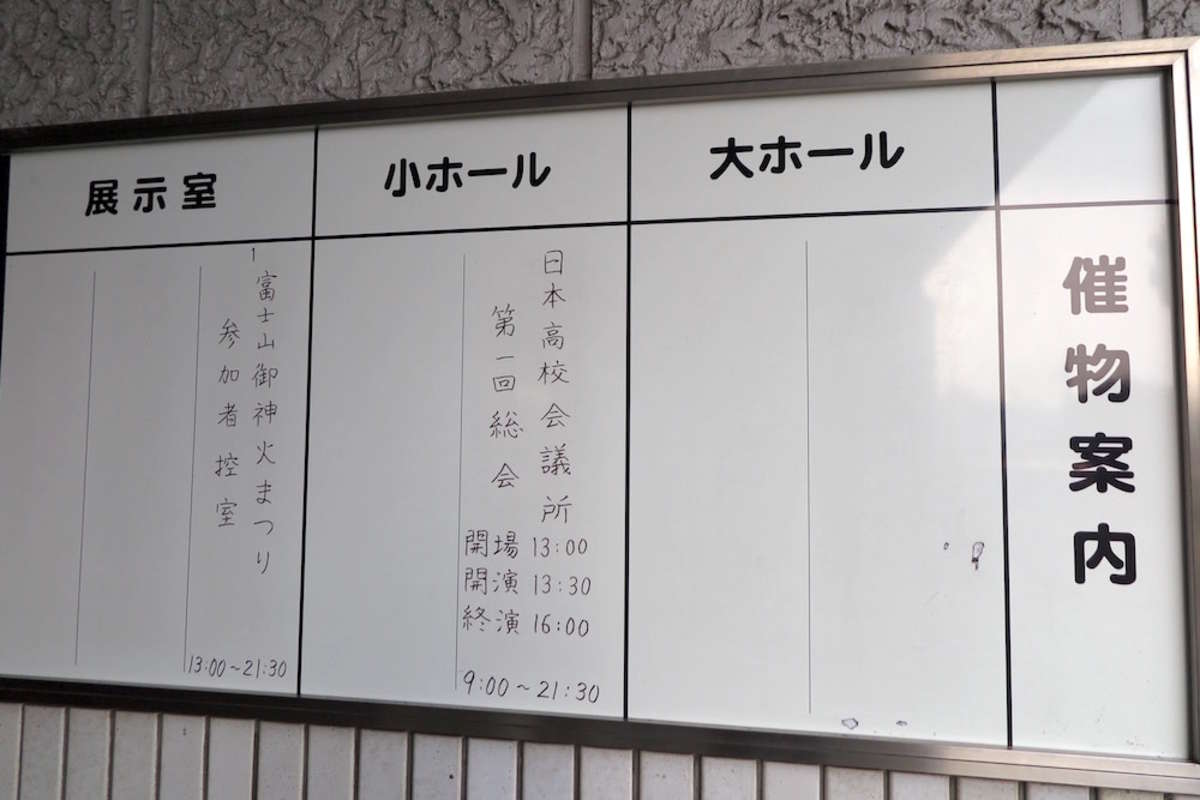 催物案内
大ホール
小ホール
日本高校会議所
第一回総会
開場 13:00
開演 13:30
終演 16:00
9:00～21:30
展示室
富士山御神火まつり
参加者控室
13:00～21:30